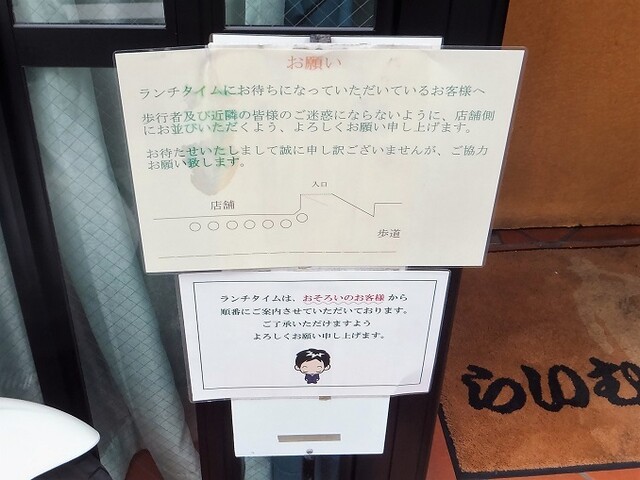 お願い
ランチタイムにお待ちになっていただいているお客様へ
歩行者及び近隣の皆様のご迷惑にならないように、店舗側
にお並びいただくよう、よろしくお願い申し上げます。
お待たせいたしまして誠に申し訳ございませんが、ご協力
お願い致します。
入口
店舗
歩道
ランチタイムは、おそろいのお客様から
順番にご案内させていただいております。
ご了承いただけますよう
よろしくお願い申し上げます。
らいむ